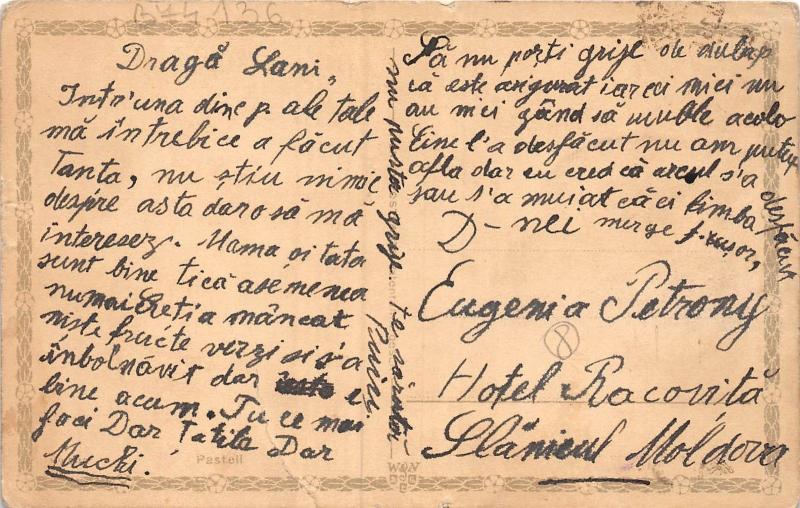 B74136
Dragă Lani,
Într'una din p. ale tale
mă întrebi ce a făcut
Tanta, nu știu nimic
despre asta dar o să mă
interesez. Mama și tata
sunt bine tică asemenea
numai Greti a mâncat
niște fructe verzi și s'a
înbolnăvit dar e
bine acum. Tu ce mai
faci Dar Tatile Dar
Muchi.
nu purta grije te sărută
Puiu.
Să nu porți grije de dulap
că este asigurat iar cei mici nu
au nici gând să umble acolo
Cine l'a desfăcut nu am putut
afla dar eu cred că arcul s'a desfăcut
sau s'a muiat căci limba
merge f. ușor,
D-nei
Eugenia Petrony
8
Hotel Racoviță
Slănicul Moldova
Pastell
W.O.N